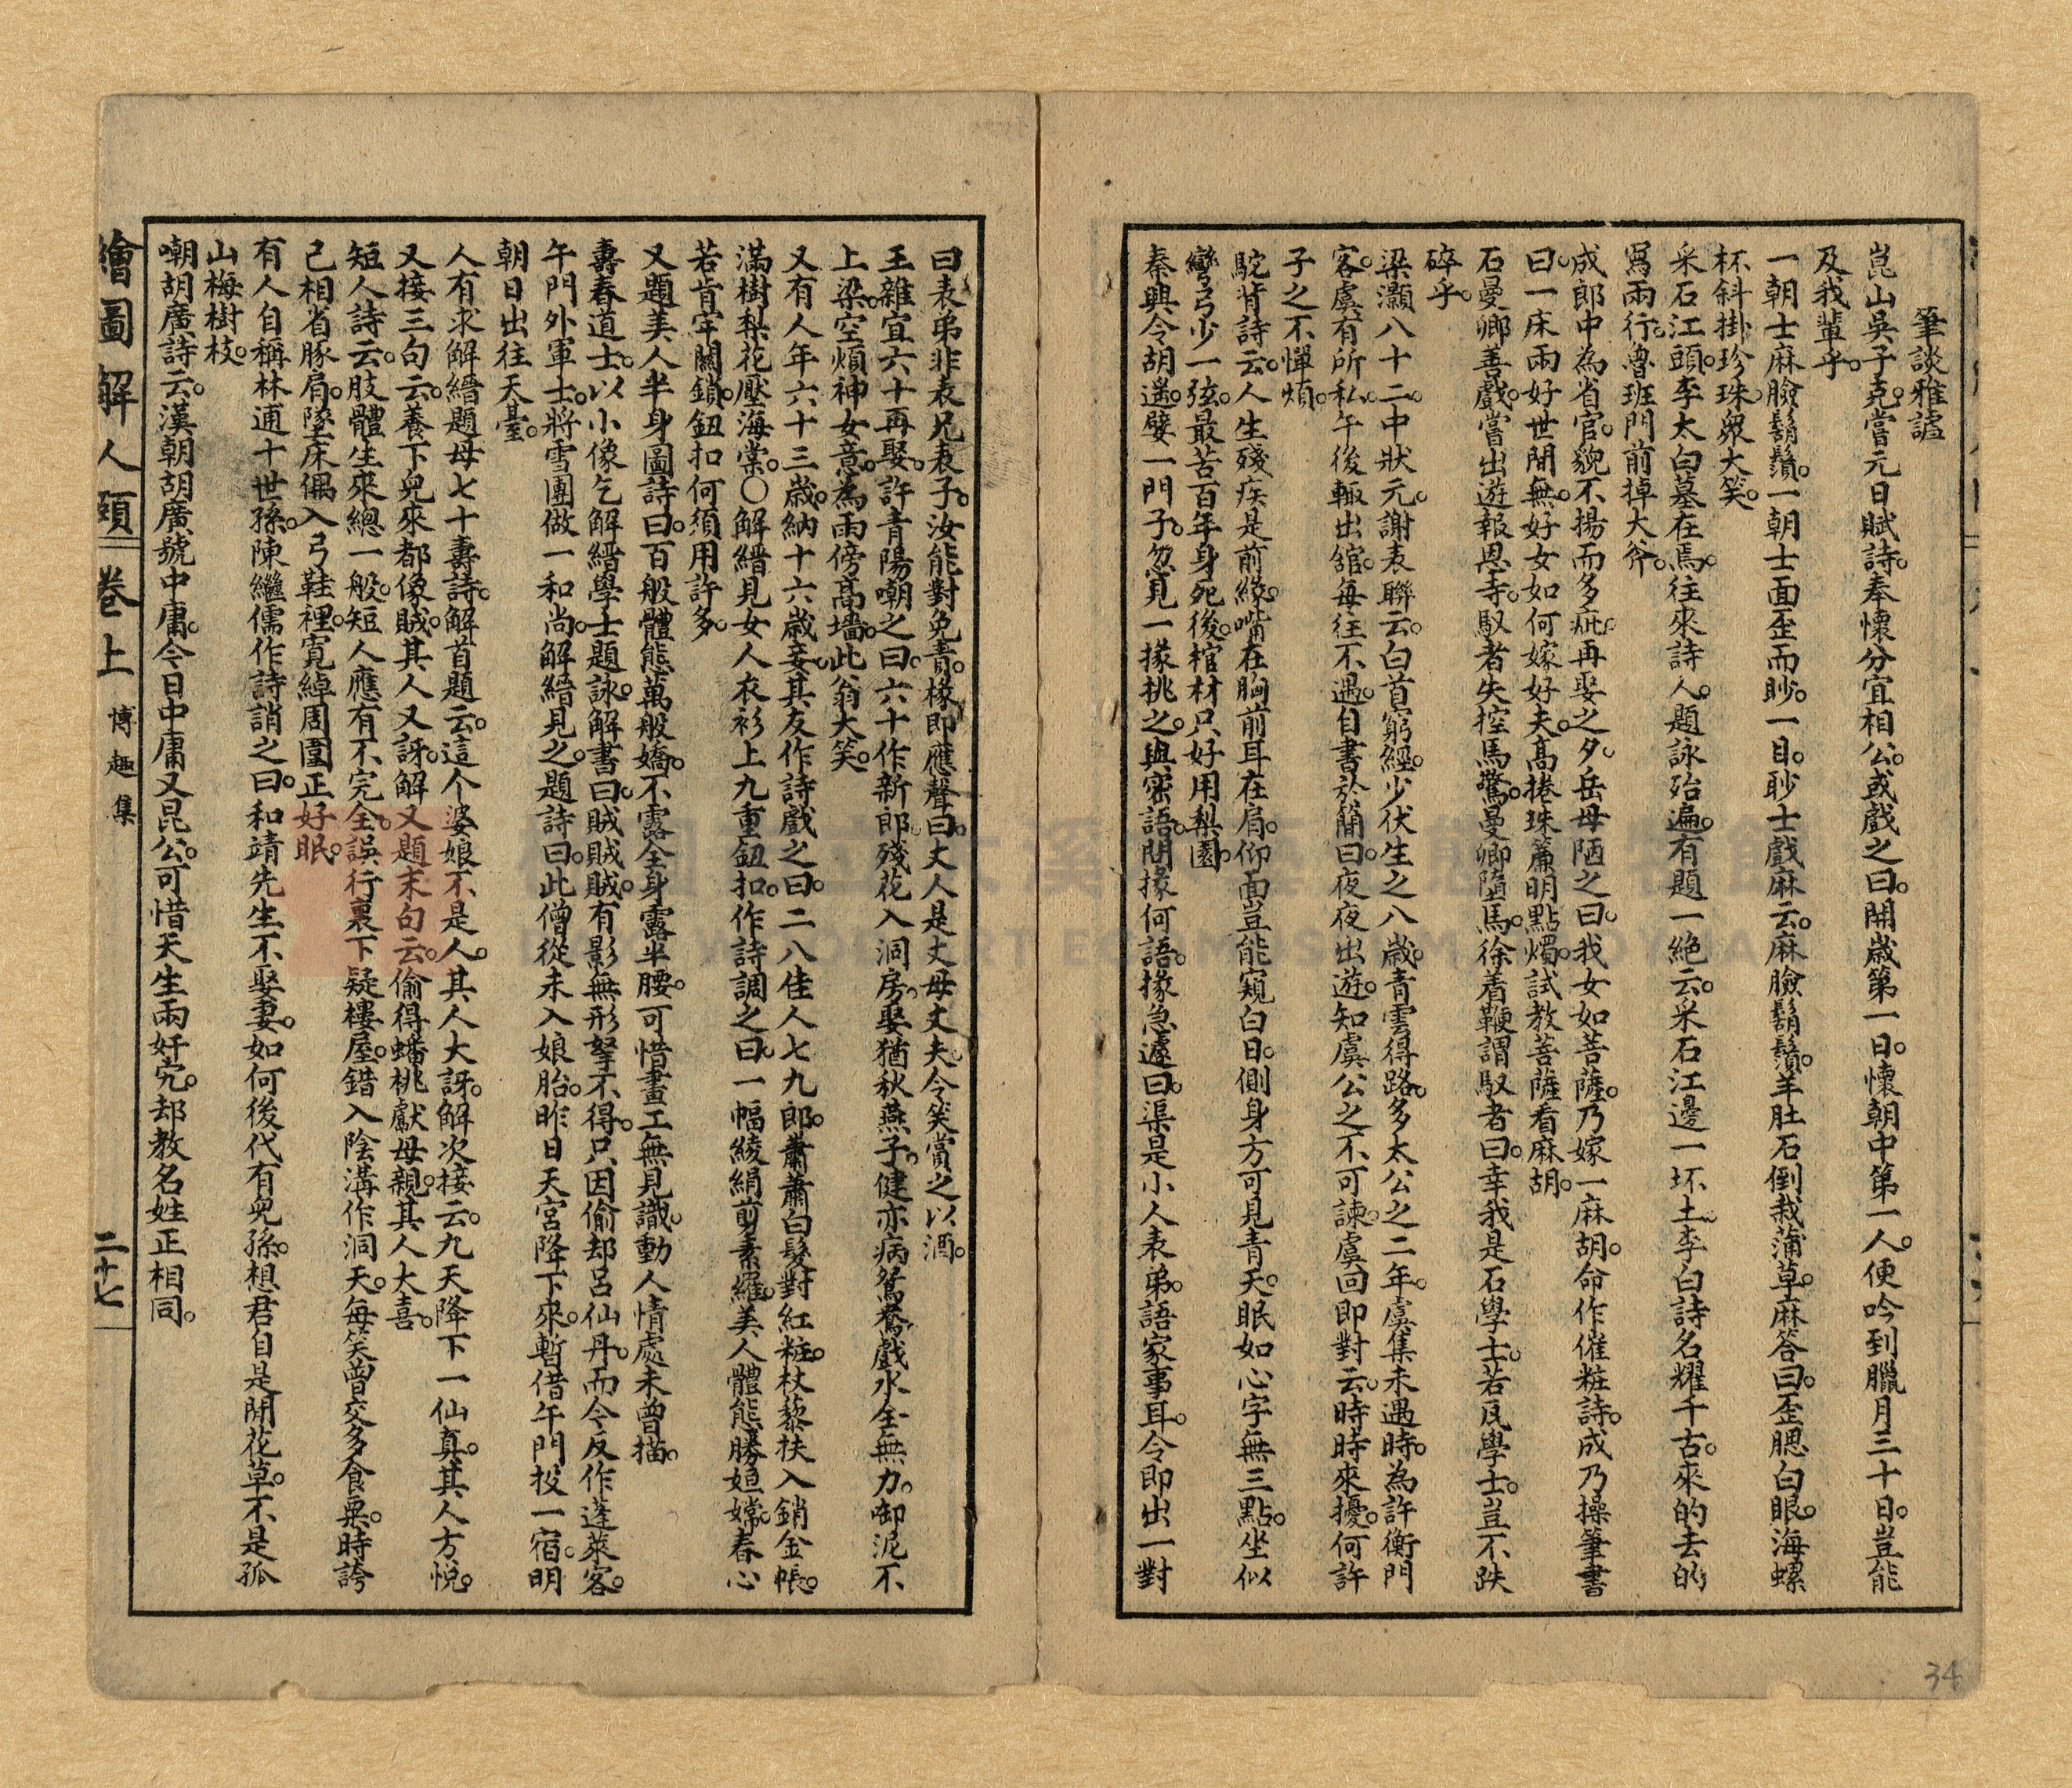 筆談雅謔
崑山吳子克。嘗元日賦詩。奉懷分宜相公。或戲之曰。開歲第一日。懷朝中第一人。便吟到臘月三十日。豈能
及我輩乎。
一朝士麻臉鬍鬚。一朝士面歪而眇。一目。眇士戲麻云。麻臉鬍鬚。羊肚石倒栽蒲草。麻答曰。歪腮白眼。海螺
杯斜掛珍珠。衆大笑。
采石江頭。李太白墓在焉。往來詩人。題詠殆遍。有題一絕云。采石江邊一坏土。李白詩名耀千古。來的去的
寫兩行。魯班門前掉大斧。
成郎中為省官。貌不揚而多疵。再娶之夕。岳母陋之曰。我女如菩薩。乃嫁一麻胡。命作催粧詩。成乃操筆書
曰。一床兩好世間無。好女如何嫁好夫。高捲珠簾明點燭。試教菩薩看麻胡。
石曼卿善戲。嘗出遊報恩寺。馭者失控馬驚。曼卿墮馬。徐着鞭謂馭者曰。幸我是石學士。若瓦學士。豈不跌
碎乎。
梁灝八十二。中狀元。謝表聯云。白首窮經。少伏生之八歲。青雲得路。多太公之二年。虞集未遇時。為許衡門
客。虞有所私。午後輒出舘。每往不遇。自書於簡曰。夜夜出遊。知虞公之不可諫。虞回即對云。時時來擾。何許
子之不憚煩。
駝背詩云。人生殘疾是前緣。嘴在胸前耳在肩。仰面豈能窺白日。側身方可見青天。眠如心字無三點。坐似
彎弓少一弦。最苦百年身死後。棺材只好用梨園。
秦興令胡遙。嬖一門子。忽見一掾挑之。與密語。問掾何語。掾急遽曰。渠是小人表弟。語家事耳。令即出一對
曰表弟非表兄表子。汝能對免責。椽即應聲曰。丈人是丈母丈夫。令笑賞之以酒。
王雜宜六十再娶。許青陽嘲之曰。六十作新郎。殘花入洞房。娶猶秋燕子。健亦病鴛鴦。戲水全無力。啣泥不
上梁。空煩神女意。為雨傍高墻。此翁大笑。
又有人年六十三歲。納十六歲妾。其友作詩戲之曰。二八佳人七九郎。蕭蕭白髮對紅粧。杖藜扶入銷金帳。
滿樹梨花壓海棠。〇解縉見女人衣衫上九重鈕扣。作詩調之曰。一幅綾絹剪素羅。美人體態勝姮嫦。春心
若肯牢關鎖。鈕扣何須用許多。
又題美人半身圖詩曰。百般體態萬般嬌。不露全身露半腰。可惜畫工無見識。動人情處未曾描。
壽春道士。以小像乞解縉學士題詠。解書曰。賊賊賊。有影無形拏不得。只因偷却呂仙丹。而今反作蓬萊客。
午門外軍士。將雪團做一和尚。解縉見之。題詩曰。此僧從未入娘胎。昨日天宮降下來。暫借午門投一宿。明
朝日出往天臺。
人有求解縉題母七十壽詩。解首題云。這个婆娘不是人。其人大訝。解次接云。九天降下一仙真。其人方悅。
又接三句云。養下兒來都像賊。其人又訝。解又題末句云。偷得蟠桃獻母親。其人大喜。
短人詩云。肢體生來總一般。短人應有不完全。誤行裏下疑樓屋。錯入陰溝作洞天。每笑曾交多食粟。時誇
己相省豚肩。墜床偶入弓鞋裡。寬綽周圍正好眠。
有人自稱林逋十世孫。陳繼儒作詩誚之曰。和靖先生不娶妻。如何後代有兒孫。想君自是閒花草。不是孤
山梅樹枝。
嘲胡廣詩云。漢朝胡廣號中庸。今日中庸又昆公。可惜天生兩奸宄。却教名姓正相同。
繪圖解人頤 卷上 博趣集 二十七
34